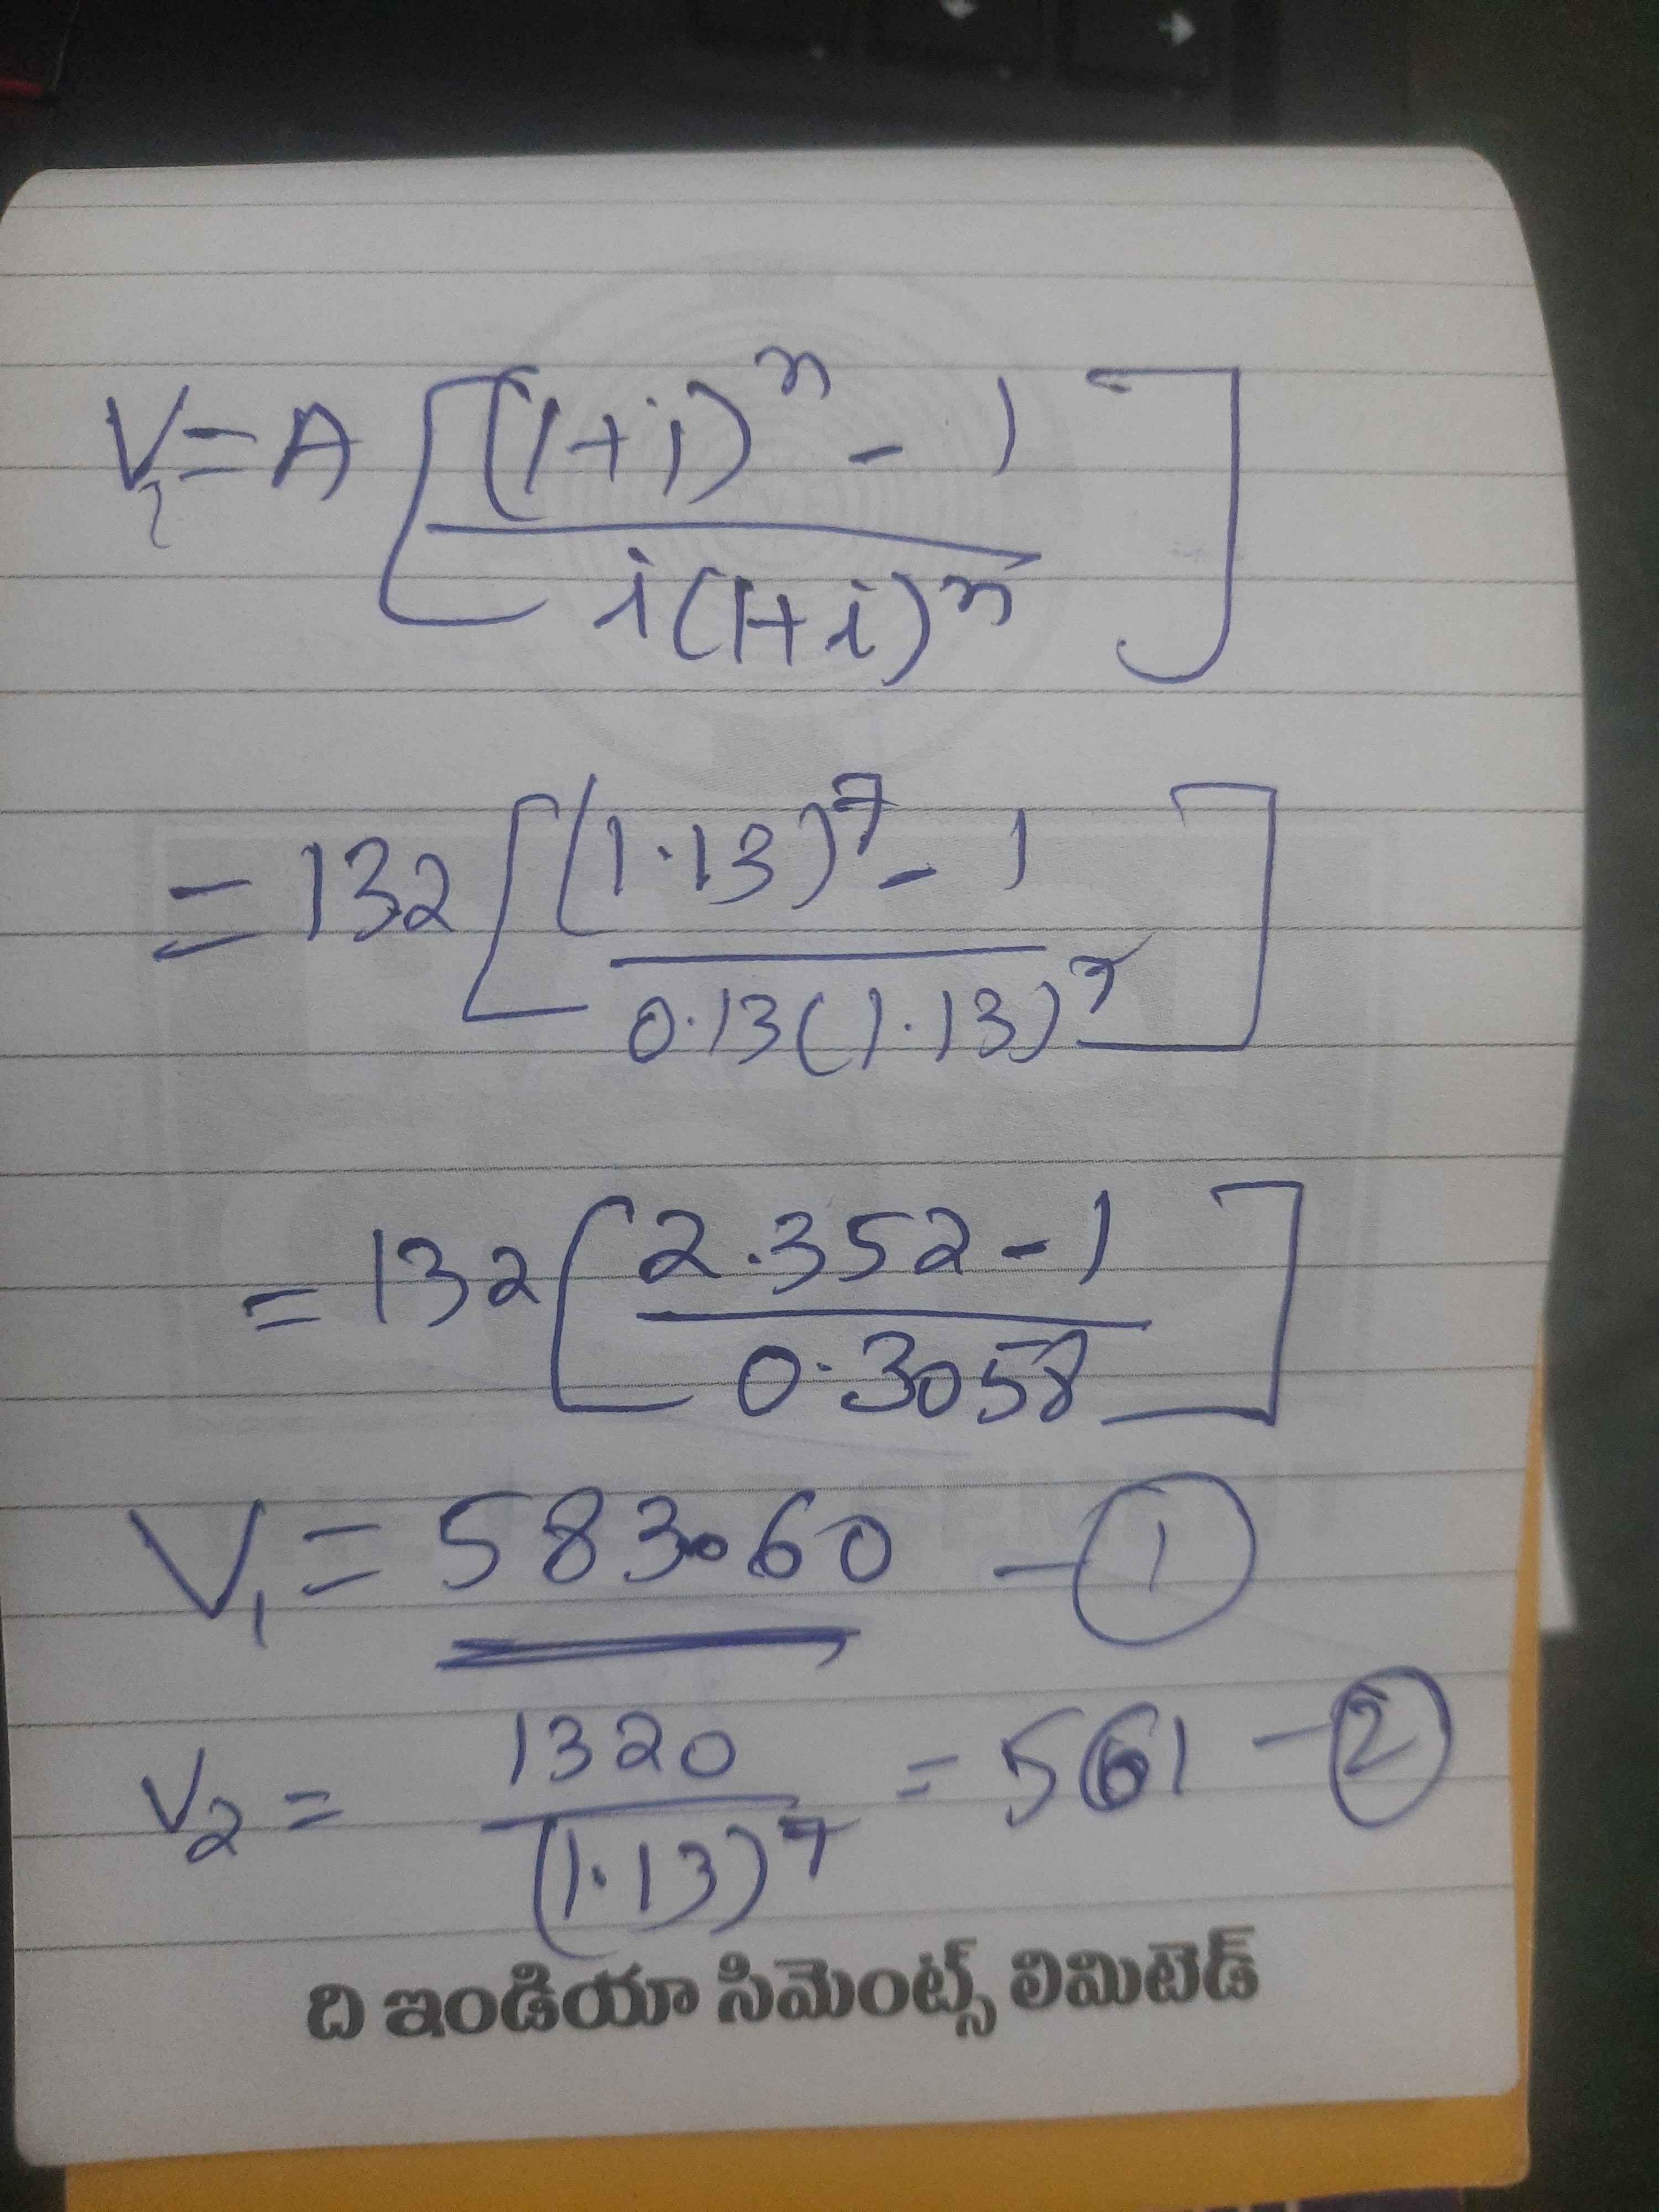 V₁ = A [ (1+i)ⁿ - 1
i(1+i)ⁿ ]
= 132 [ (1.13)⁷ - 1
0.13(1.13)⁷ ]
= 132 [ 2.352 - 1
0.3058 ]
V₁ = 583.60 - ①
V₂ = 1320 = 561 - ②
(1.13)⁷
ది ఇండియా సిమెంట్స్ లిమిటెడ్